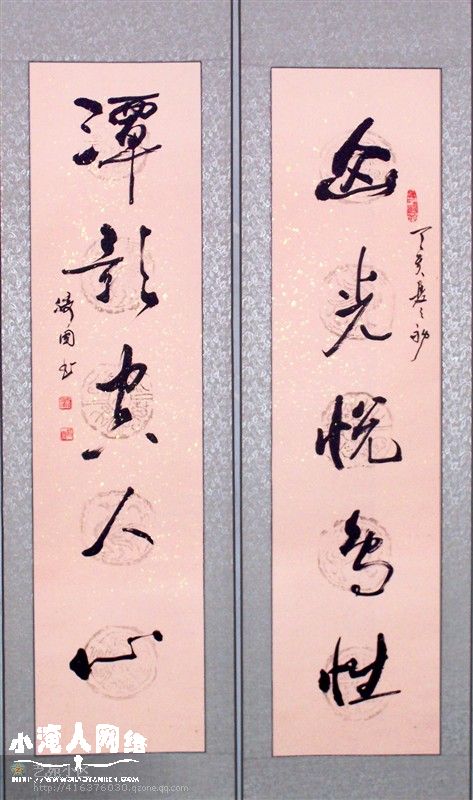 山光悦鸟性
丁亥夏初
潭影空人心
小淹人网络
http://416376030.qzone.qq.com